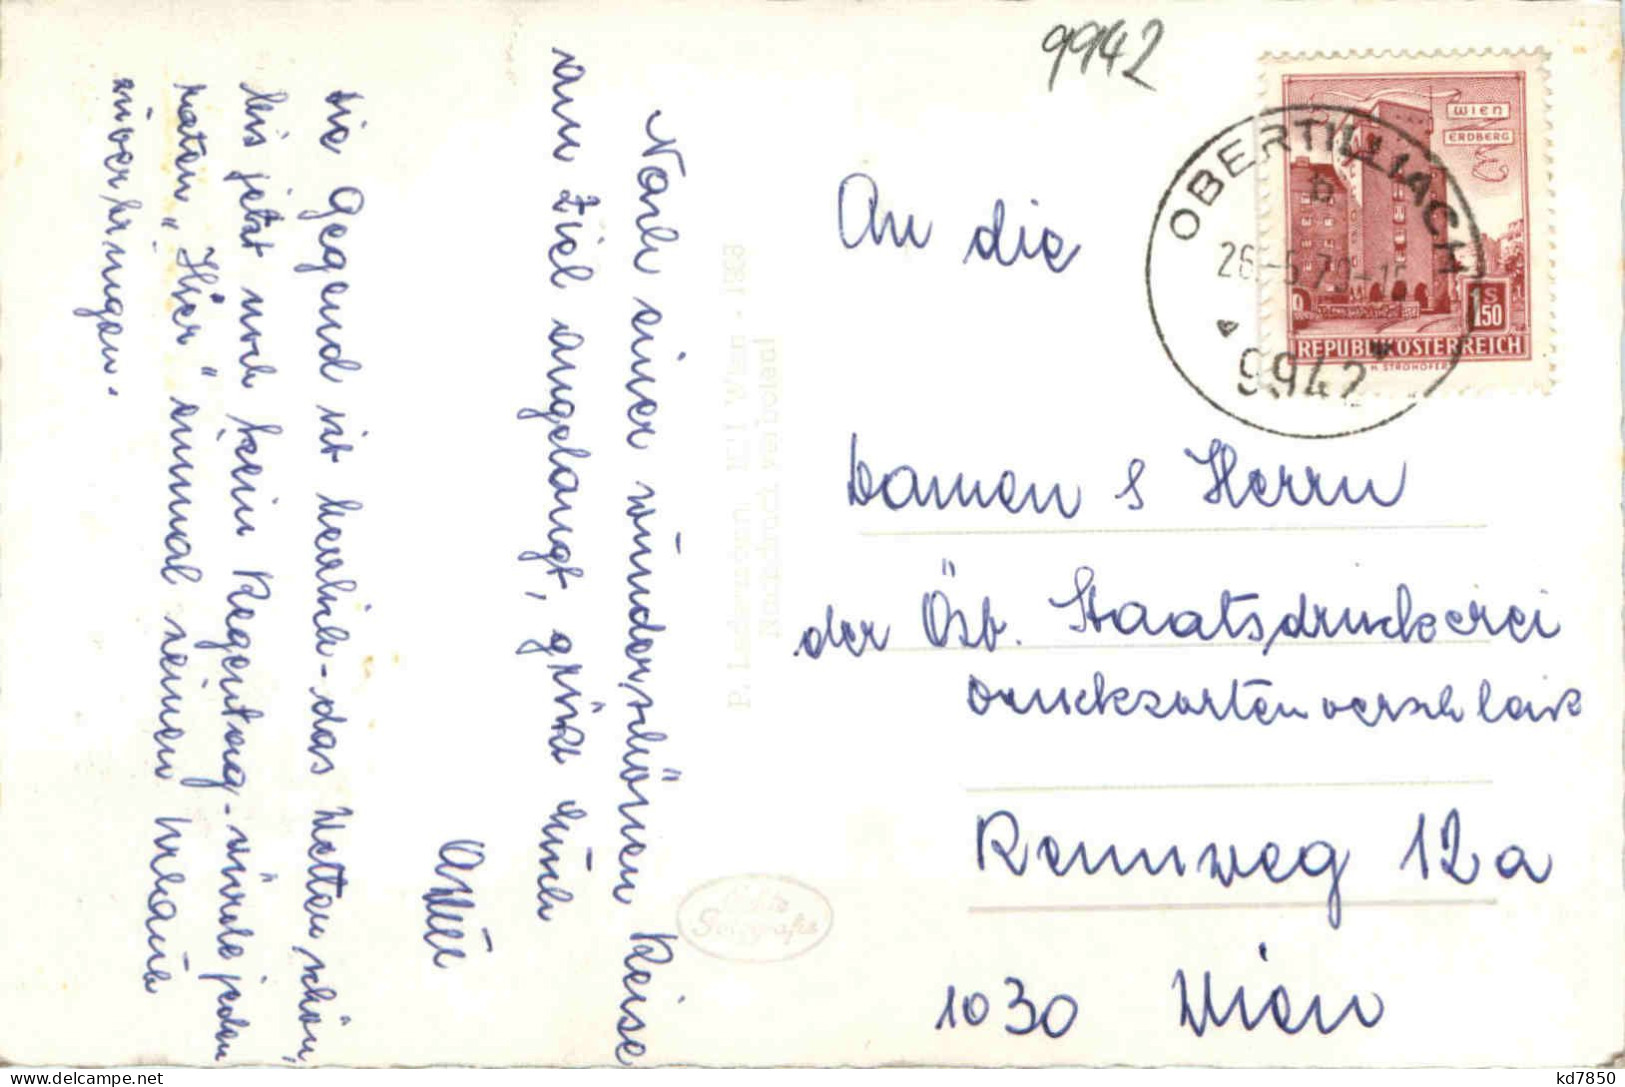 9942
WIEN
ERDBERG
S
1.50
REPUBLIK ÖSTERREICH
H. STROHOFER
OBERTILLIACH
b
26.-5.70-15
9942
Nach einer wunderschönen Reise
am Ziel angelangt, grüßt euch
die Gegend ist herrlich - das Wetter schön,
bis jetzt noch kein Regentag - würde jedem
raten "Hier" einmal seinen Urlaub
zu verbringen.
An die
Damen & Herrn
der Öst. Staatsdruckerei
Drucksortenverschleiß
Rennweg 12a
1030 Wien
P. Ledermann, Wien - 1968
Nachdruck verboten!
Echte
Fotografie
kd7850